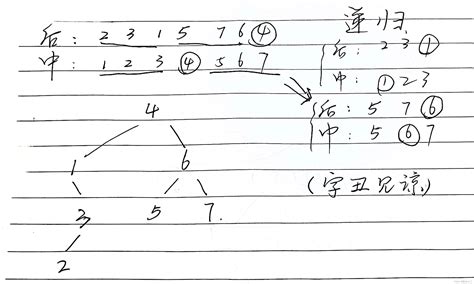 后: 2 3 1 5 7 6 ④
中: 1 2 3 ④ 5 6 7
递归
后: 2 3 ①
中: ① 2 3
后: 5 7 ⑥
中: 5 ⑥ 7
(字丑见谅)
4
1 6
3 5 7.
2